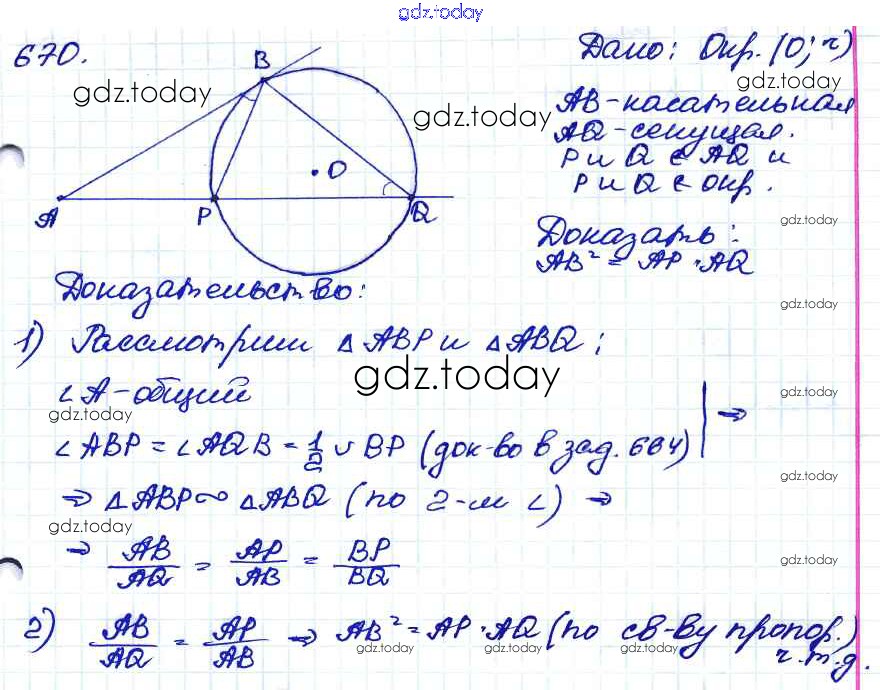 gdz.today
670.
Дано: Окр. (О; r)
gdz.today
gdz.today
gdz.today
АВ - касательная
AQ - секущая.
P и Q ∈ AQ и
P и Q ∈ окр.
B
O
A
P
Q
gdz.today
Доказать:
AB² = AP · AQ
Доказательство:
gdz.today
1) Рассмотрим △ABP и △ABQ;
gdz.today
∠A - общий
gdz.today
gdz.today
∠ABP = ∠AQB = 1/2 ◡ BP (док-во в зад. 664) | ⇒
gdz.today
⇒ △ABP ∾ △ABQ (по 2-м ∠) ⇒
gdz.today
⇒ AB/AQ = AP/AB = BP/BQ
gdz.today
2) AB/AQ = AP/AB ⇒ AB² = AP · AQ (по св-ву пропор.)
gdz.today gdz.today gdz.today
ч.т.д.